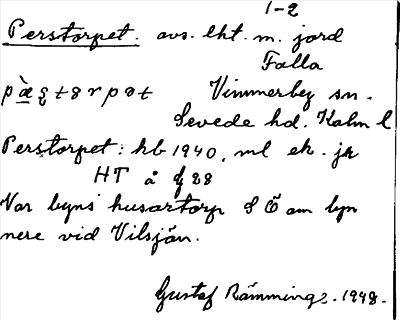 1-2
Perstorpet. avs. lht. m. jord
Falla
pæ̀ʂtɘrpɘt Vimmerby sn.
Sevede hd. Kalm l
Perstorpet: hb 1940, ml ek. jk
HT å f 28
Var byns husartorp S Ö om byn
nere vid Vilsjön.
Gustaf Rämminge. 1948.